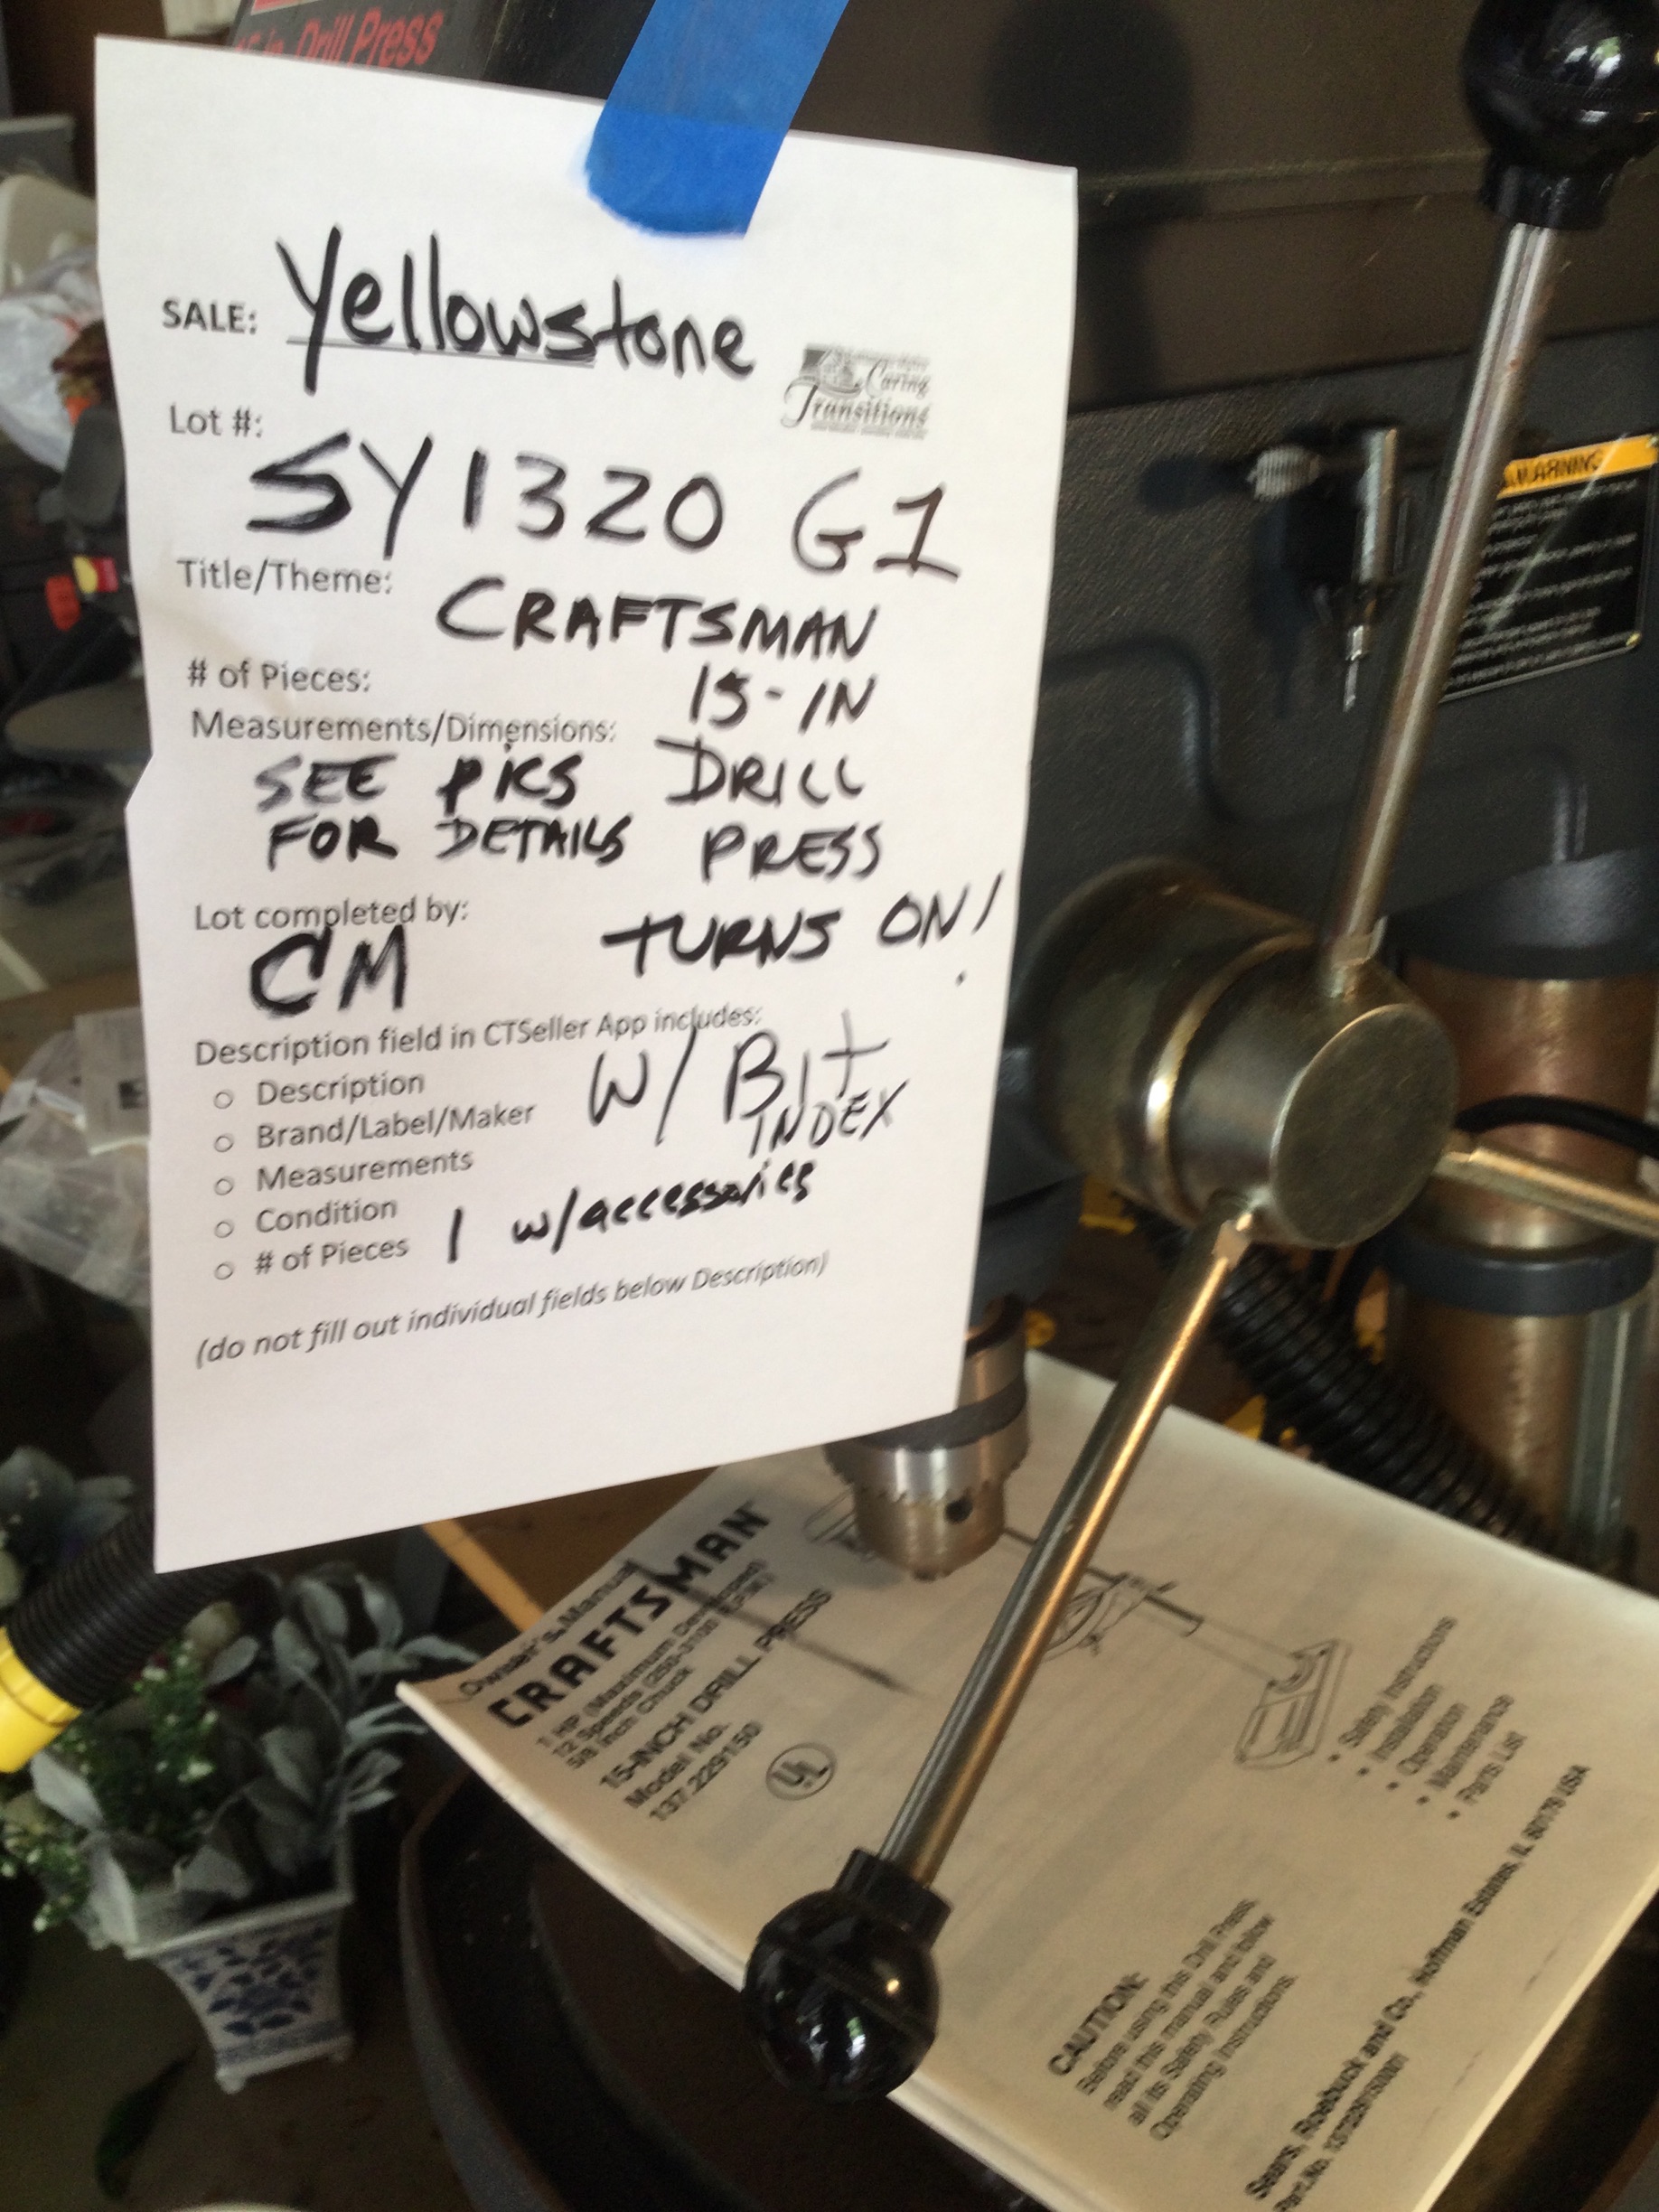 Drill Press
SALE: Yellowstone
Caring
Transitions
Lot #:
SY1320 G1
Title/Theme:
CRAFTSMAN
# of Pieces:
15-IN
Measurements/Dimensions:
SEE PICS DRILL
FOR DETAILS PRESS
Lot completed by:
CM TURNS ON!
Description field in CTSeller App includes:
W/ BIt
INDEX
○ Description
○ Brand/Label/Maker
○ Measurements
○ Condition
○ # of Pieces 1 w/accessories
(do not fill out individual fields below Description)
WARNING
Owner's Manual
CRAFTSMAN
1 HP (Maximum Developed)
12 Speeds (250-3100 RPM)
5/8 Inch Chuck
15-INCH DRILL PRESS
Model No.
137.229150
UL
• Safety Instructions
• Installation
• Operation
• Maintenance
• Parts List
CAUTION:
Before using this Drill Press,
read this manual and follow
all its Safety Rules and
Operating Instructions.
Sears, Roebuck and Co., Hoffman Estates, IL 60179 USA
Part No.